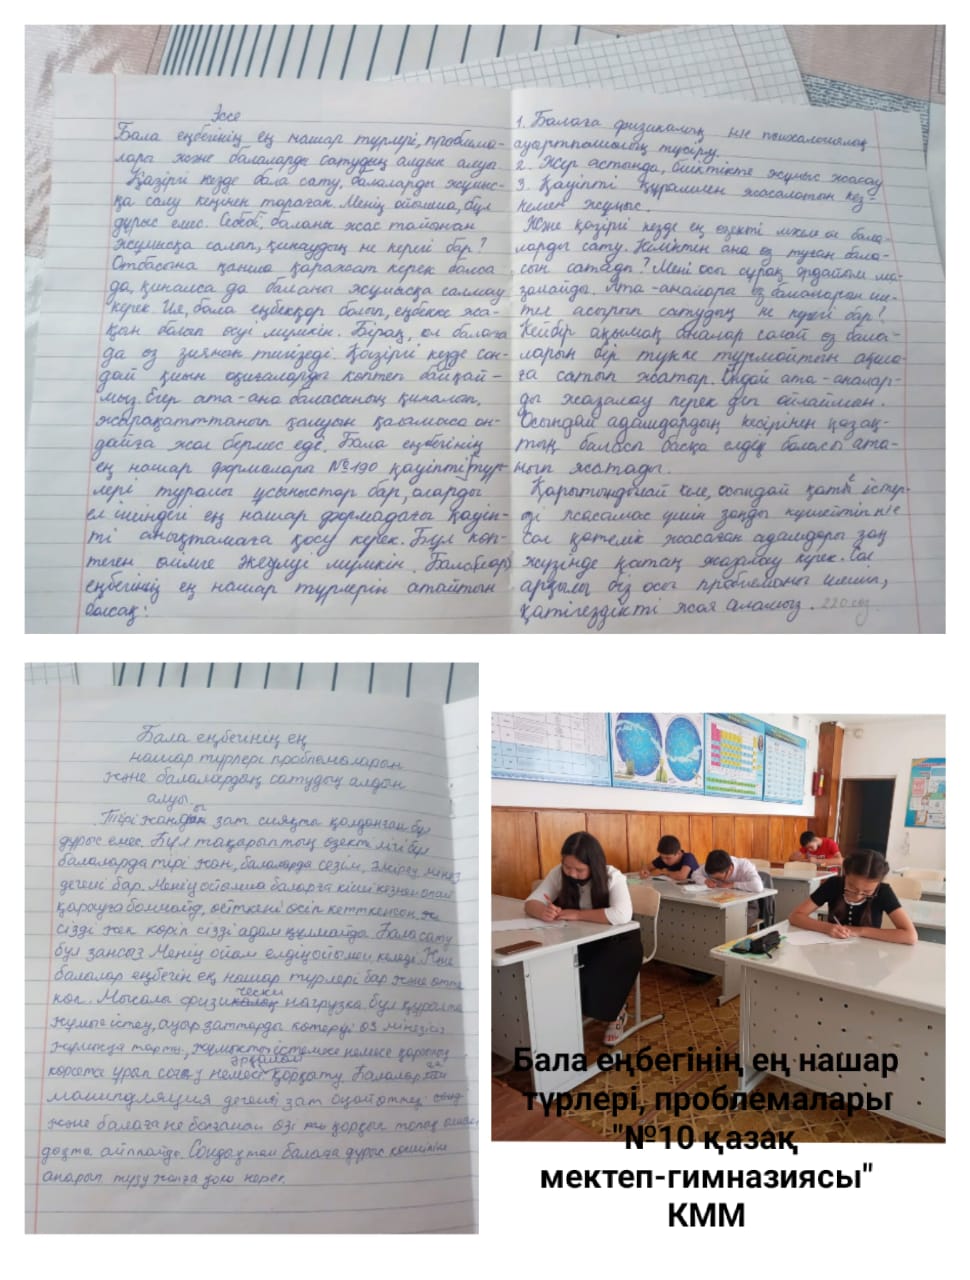 Эссе
Бала еңбегінің ең нашар түрлері, проблема-
лары және балаларды сатудың алдын алуы
Қазіргі кезде бала сату, балаларды жұмыс-
қа салу кеңінен тараған. Менің ойымша, бұл
дұрыс емес. Себебі, баланы жас тайонан
жұмысқа салып, қинаудың не керегі бар?
Отбасына қанша қаражат керек болса
да, қиналса да баланы жұмысқа салмау
керек. Ия, бала еңбекқор болып, еңбекке жа-
қын болып өсуі мүмкін. Бірақ, ол балаға
да өз зиянын тигізеді. Қазіргі кезде сон-
дай қиын оқиғаларды көптеп байқай-
мыз. Егер ата-ана баласының қиналып,
жарақаттанып қалуын қаламаса он-
дайға жол бермес еді. Бала еңбегінің
ең нашар формалары №190 қауіпті түр-
лері туралы ұсыныстар бар, оларды
ел ішіндегі ең нашар формадағы қауіп-
ті анықтамаға қосу керек. Бұл көп-
теген өлімге әкелуі мүмкін. Бала
еңбегінің ең нашар түрлерін атайтын
болсақ:
1. Балаға физикалық не психологиялық
ауыртпашылық түсіру.
2. Жер астында, биіктікте жұмыс жасау
3. Қауіпті құралмен жасалатын кез-
келген жұмыс.
Және қазіргі кезде ең өзекті мәселе ол бала-
ларды сату. Неліктен ана өз туған бала-
сын сатады? Мені осы сұрақ әрдайым ма-
залайды. Ата-аналара өз балаларын ше-
тел асырып сатудың не керегі бар?
Кейбір ақымақ аналар солай өз бала-
ларын бір түкке тұрмайтын ақша-
ға сатып жатыр. Ондай ата-аналар-
ды жазалау керек деп ойлаймын.
Осындай адамдардың кесірінен қазақ-
тың баласы басқа елдің баласы ата-
нып жатады.
Қорытындылай келе, осындай қате істер-
ді жасамас үшін заңды күшейтіп не
сол қателік жасаған адамдары заң
жүзінде қатаң жазалау керек. Сол
арқылы біз осы проблеманы шешіп,
қатігездікті жоя аламыз. 220 сөз.
Бала еңбегінің ең
нашар түрлері проблемаларын
және балалардың сатудың алдын
алуы
Тірі жанды зат сияқты қолданған бұл
дұрыс емес. Бұл тақарыптың өзектілігі бұл
балаларда тірі жан, балаларда сезім, әмірғу мінез
дегені бар. Менің ойымша баларға кіші кезінен олай
қарауға болмайд, өйткені өсіп кеткенсоң
сізді жек көріп сізді адам құлмайды Бала сату
бұл заңсыз Менің ойым елдің ойымен келеді. Және
балалар еңбегін ең нашар түрлері бар және өтте
көп. Мысалы физический нагрузка бұл құралта
жұмыс істеу, ауыр заттарды көтеруі өз мінезісіз
жұмысқа тарту, жұмыкты істемесе немесе қарсылық
көрсетсе ұрып соғуы немесе әрқашан қорқыту. Балалар
манипуляция дегенді зат оңай өтпед
және балаға не болғаның өзі
дақта айплайды. Сондықтан балаға дұрыс көңілін
апарып түзу жолға қою керек.
Бала еңбегінің ең нашар
түрлері, проблемалары
"№10 қазақ
мектеп-гимназиясы"
КММ